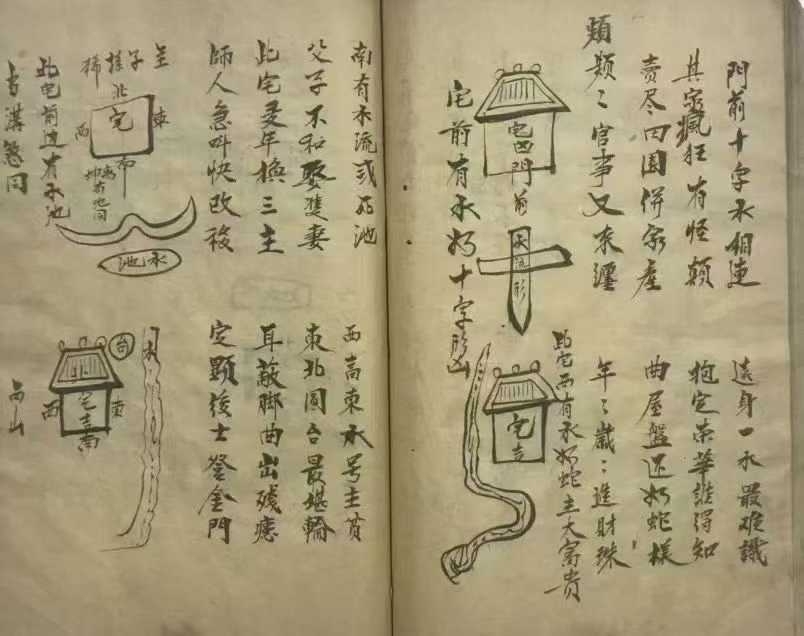 門前十字水相連
其家瘋狂有怪顛
賣尽田園併家產
類類〻官事又來纏
宅凶
門前
水流形
宅前有水如十字形凶
遠身一水最难識
抱定荣華誰得知
曲屋盤迴如蛇樣
年〻歲〻進財珠
宅吉
此宅西有水如蛇主大富貴
南有水流或水池
父子不和娶隻妻
此宅叏年換三主
師人急叫快改移
北
宅
東
西
水池
此宅前边有水池
西高東水号主貧
東北圓台最堪輪
耳蔽脚曲出殘瘾
定顆後士登金門
台
水
北
宅吉
南
東
西
高山